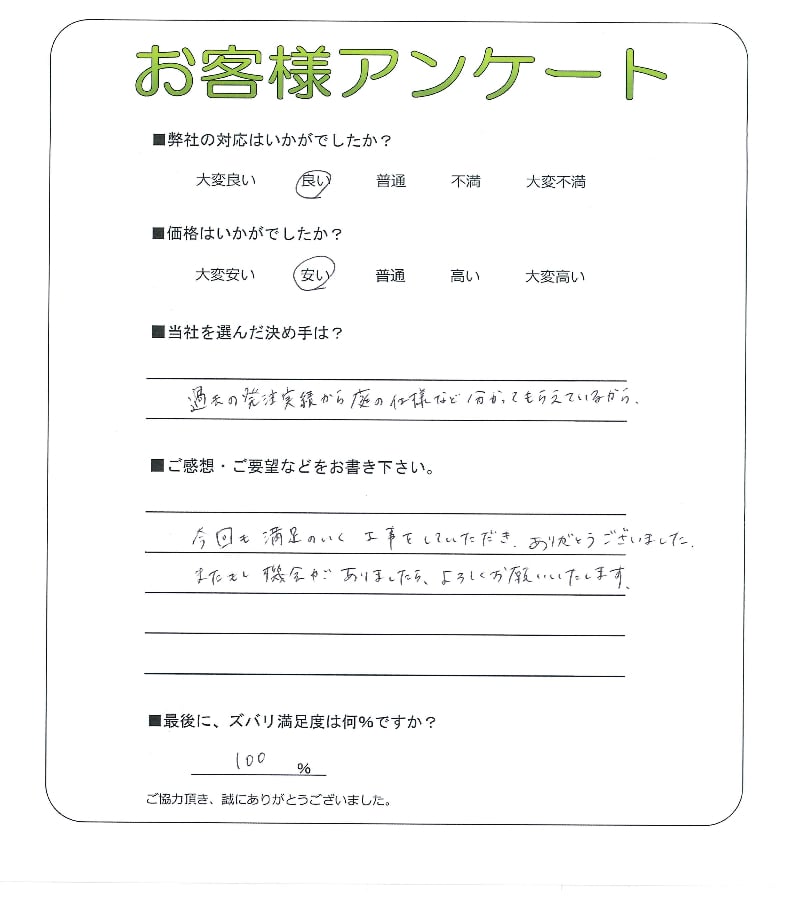 お客様アンケート
■弊社の対応はいかがでしたか？
大変良い 良い 普通 不満 大変不満
■価格はいかがでしたか？
大変安い 安い 普通 高い 大変高い
■当社を選んだ決め手は？
過去の発注実績から庭の仕様など分かってもらえているから、
■ご感想・ご要望などをお書き下さい。
今回も満足のいく工事をしていただき、ありがとうございました。
またもし機会がありましたら、よろしくお願いいたします。
■最後に、ズバリ満足度は何％ですか？
100 ％
ご協力頂き、誠にありがとうございました。